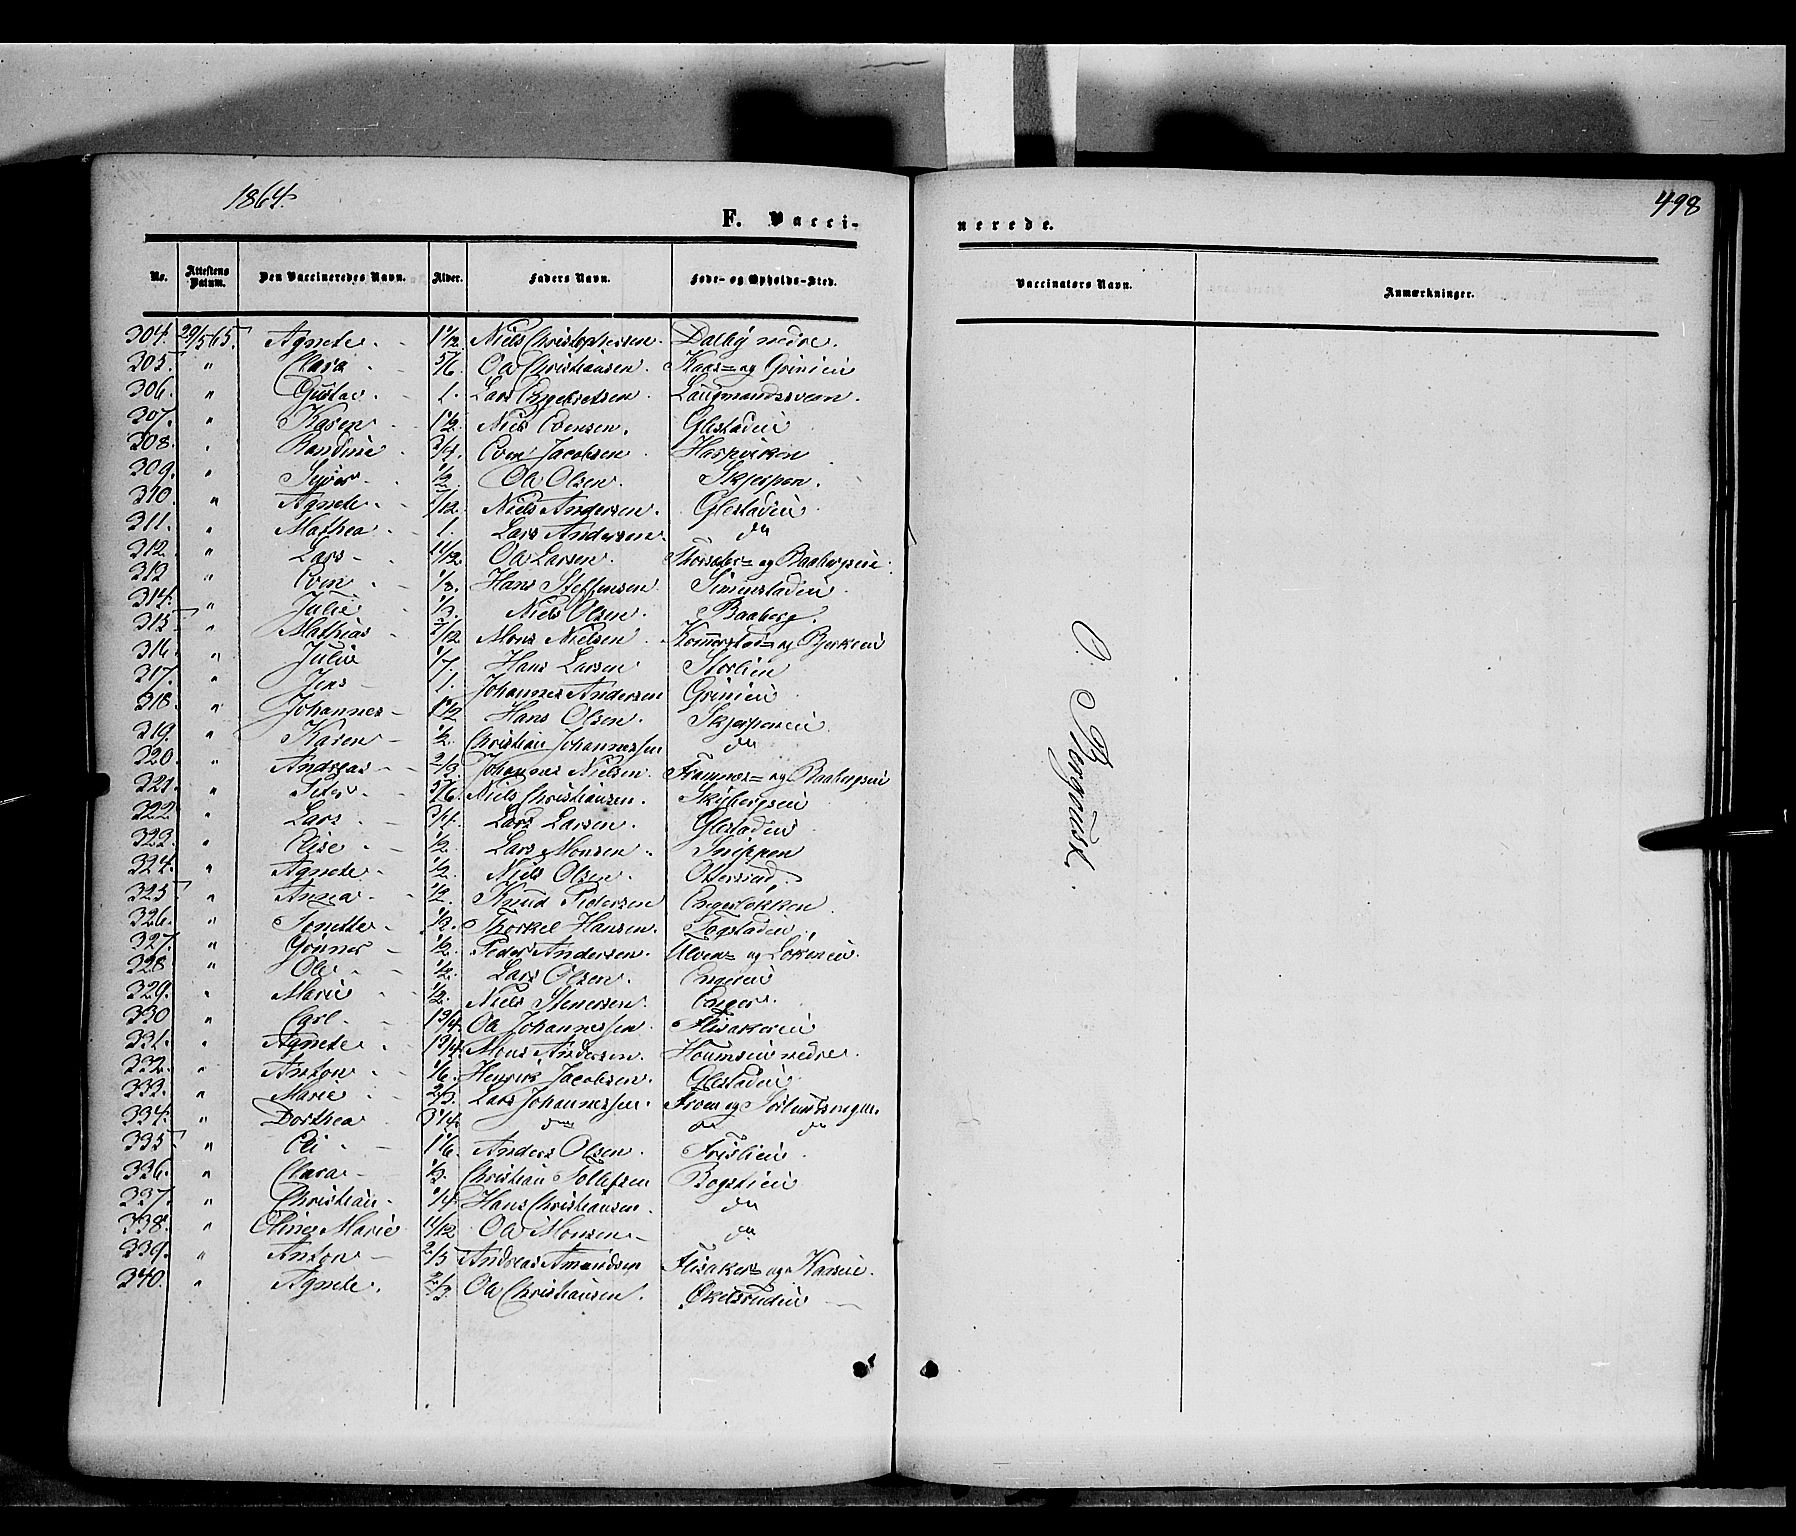 1864.
498
F. Vacci-
nerede.
No. Attestens Datum. Den Vaccineredes Navn. Alder. Faders Navn. Føde- og Opholds-Sted. Vaccinators Navn. Anmærkninger.
304. 29/5 65. Agnete 1 1/2 Niels Christophersen. Dalby nedre.
305. " Clara 5/6 Ola Christiansen. Kaas- og Grinien
306. " Gustav 1. Lars Engebretsen
307. " Karen 1 1/2 Niels Evensen. Glestadeie
308. " Randine 3/4. Even Jacobsen
309. " Syver 1/2 Ola Olsen. Skjerpen.
310. " Agnete 7/12. Niels Andersen. Glestadeie
311. " Mathea 1. Lars Andersen. do
312. " Lars 11/12 Ola Larsen. og Baabergseie
313 " Even 1/3. Hans Steffensen
314. " Julie 1/3. Niels Olsen. Baaberg.
315 " Mathias 7/12 Mons Nielsen. og Bjerkeeie
316. " Julie 17. Hans Larsen Storlien
317. " Jens 1. Johannes Andersen Grinieie
318. " Johannes 1 1/2 Hans Olsen. Skjerpeneie
319. " Karen 1/2. Christian Johannessen do
320. " Andreas 2/3. Johannes Nielsen. Framnes- og Baabergseie
321. " Peter 5/6. Niels Christiansen. Skybergseie
322 " Lars 3/4. Lars Larsen. Glestadeie
323. " Elise 1/2. Lars Monsen. Snippen
324. " Agnete 1/2. Niels Olsen.
325 " Anna 1/2. Knud Pedersen Engerløkken
326. " Sonette 1/2. Thorkel Hansen.
327. " Gunner 1/2. Peder Andersen.
328 " Ole 1/2. Lars Olsen. Engereie
329. " Marie 1/2. Niels Stenersen Enger.
330 " Carl 1 3/4. Ola Johannessen Flisakereie
331. " Agnete 1 3/4 Mons Andersen. Houmseie nedre.
332. " Anton 1/6. Henrik Jacobsen. Glestadeie
333. " Marie 2/3. Lars Johannessen.
334. " Dorthea 3 1/4. do do do
335 " Eli 1 1/6. Anders Olsen. Frislieie
336. " Clara 1/3. Christian Tollefsen Bogslieie
337. " Christian 1/4 Hans Christiansen. do
338. " Eline Marie 11/12 Ola Monsen do
339. " Anton 2/5 Andreas Amundsen Flisaker- og Kaaseie.
340. " Agnete. 2/3 Ola Christiansen. Økelsrudeie
O. Bergrusk.